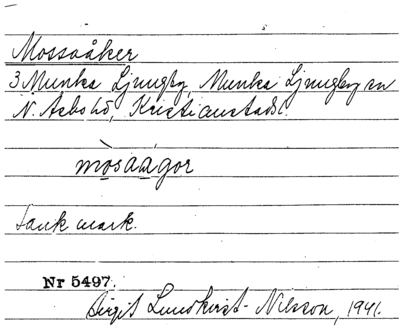 Mossaåker
3 Munka Ljungby, Munka Ljungby sn
N. Åsbo hd, Kristianstads l.
mosaågor
Sank mark.
Nr 5497.
Birgit Lundkvist-Nilsson, 1941.